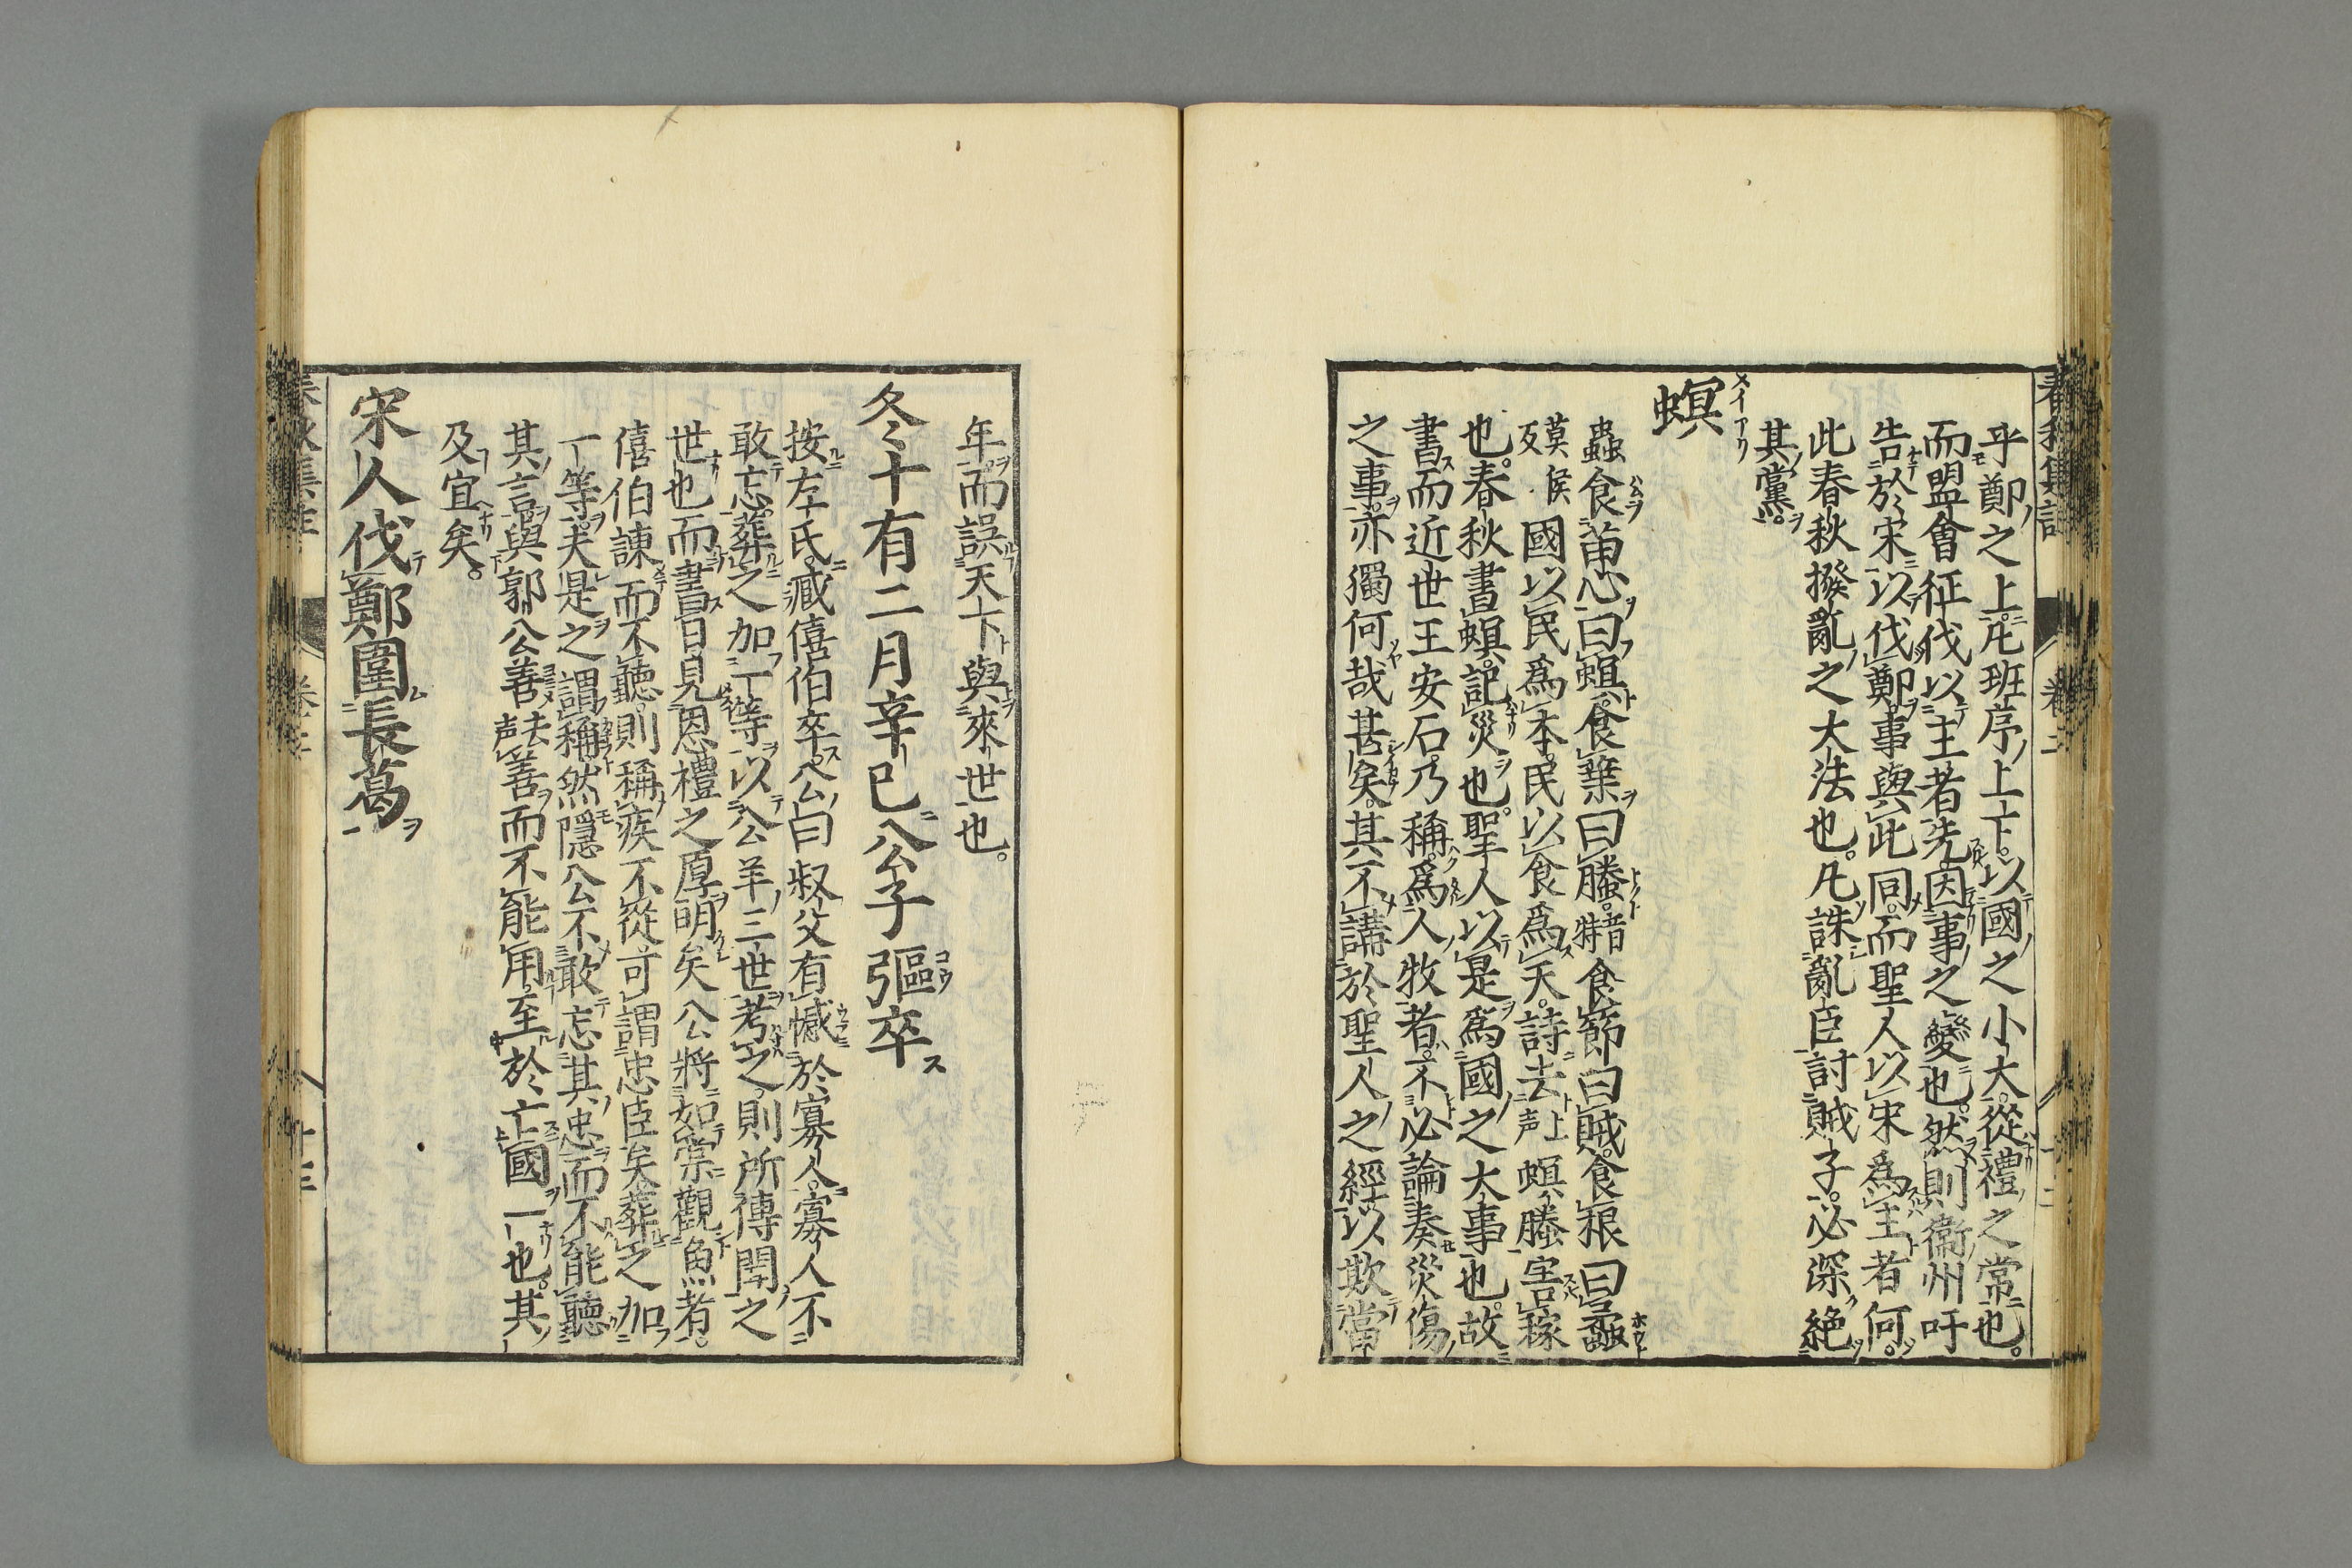 乎鄭之上。凡班序上下。以國之小大。從禮之常也。
而盟會征伐以主者先。因事之變也。然則衞州吁
告於宋。以伐鄭。事與此同。而聖人以宋爲主者何。
此春秋撥亂之大法也。凡誅亂臣討賊子。必深絶
其黨。
螟
蟲食苗心曰螟。食葉曰螣。音特食節曰賊。食根曰蟊
莫侯反國以民爲本。民以食爲天。詩去上声螟螣害稼
也。春秋書螟。記災也。聖人以是爲國之大事也。故
書。而近世王安石。乃稱。爲人牧者。不必論奏災傷
之事。亦獨何哉。甚矣。其不講於聖人之經。以欺當
年。而誤天下與來世也。
冬十有二月辛巳公子彄卒
按左氏。臧僖伯卒。公曰叔父有憾於寡人。寡人不
敢忘。葬之加一等。以公羊三世考之。則所傳聞之
世也。而書日見恩禮之厚明矣公將如棠觀魚者。
僖伯諫而不聽。則稱疾不從可謂忠臣矣。葬之加
一等。夫是之謂稱。然隱公不敢忘其忠。而不能聽
其言。與郭公善去声善而不能用。至於亡國一也。其
及宜矣。
宋人伐鄭圍長葛